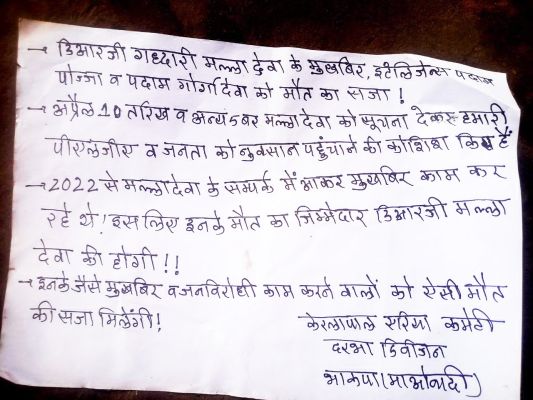 → डिआरजी गद्दारी मल्ला देवा के मुखबिर, इंटेलिजेन्स पदाम
पोज्जा व पदाम गोर्गा देवा को मौत का सजा !
→ अप्रैल 10 तारिख व अन्य 5 बर मल्ला देवा को सूचना देकर हमारी
पीएलजीए व जनता को नुक्सान पहुंचाने की कोशिश किए हैं
→ 2022 से मल्ला देवा के सम्पर्क में आकर मुखबिर काम कर
रहे थे! इस लिए इनके मौत का जिम्मेदार डिआरजी मल्ला
देवा की होगी !!
→ इनके जैसे मुखबिर व जनविरोधी काम करने वालों को ऐसी मौत
की सजा मिलेंगी!
केरलापाल एरिया कमेटी
दरभा डिवीजन
भाकपा (माओवादी)